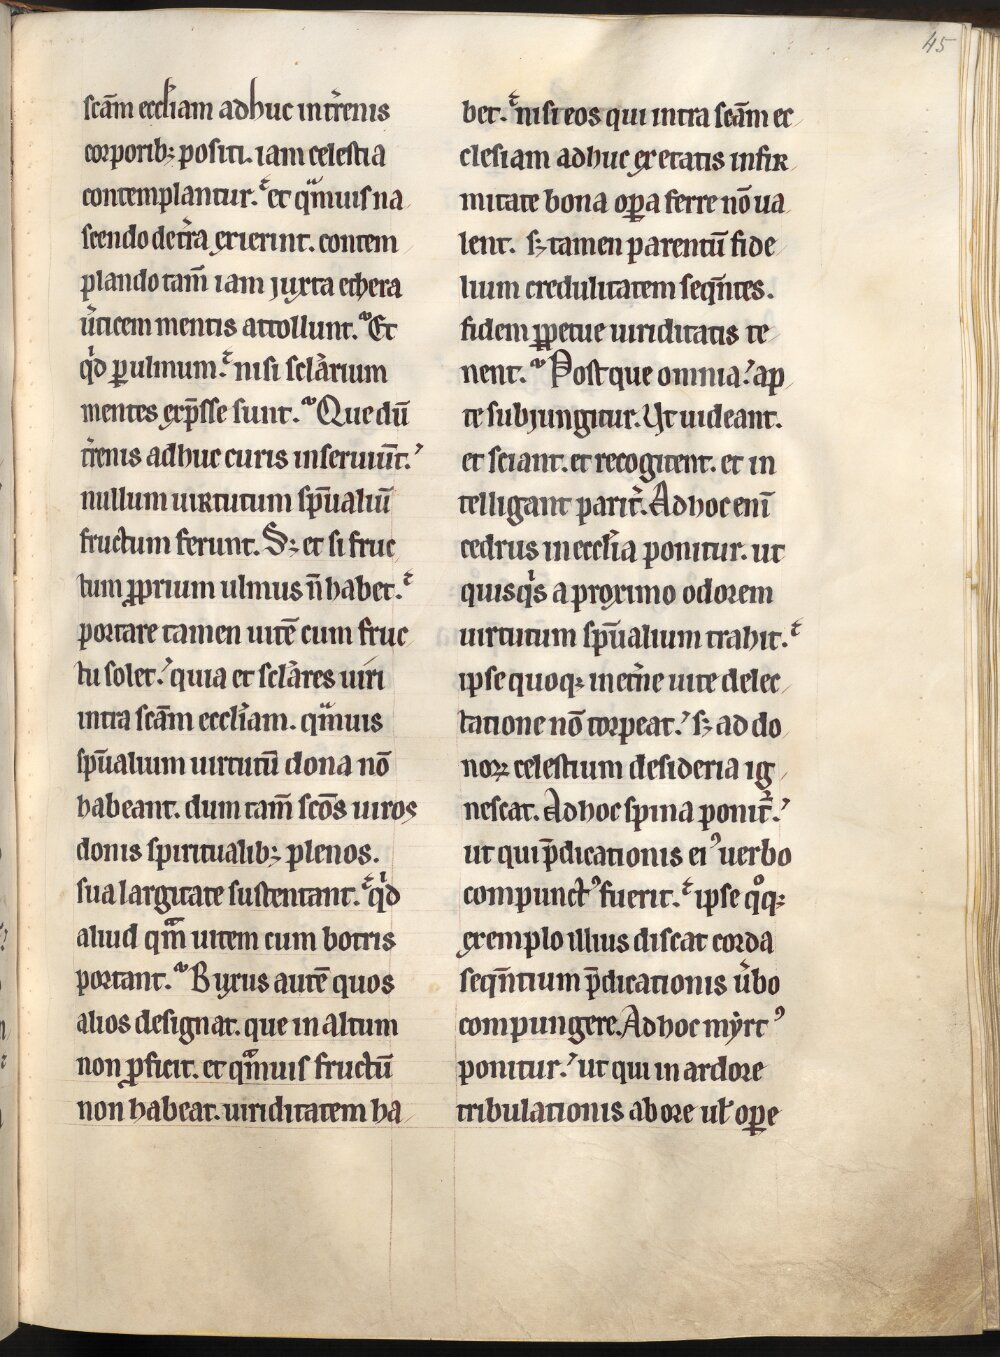 45
scā́m eccl̄iam adhuc int̄renis
corporib; positi. iam celestia
contemplantur. et qͣmuis na
scendo det̄ra exierint. contem
plando tam̄ iam juxta ethera
ūticem mentis attollunt. Et
qͥd ꝑ ulmum. nisi sclāriũ
mentes exp̄sse sunt. Que dū
t̄renis adhuc curis inseruiūt.
nullum uirtutum sp̄ualiū
fructum ferunt. Sꝫ et si fruc
tum ꝓprium ulmus n̄ habet.
portare tamen uitē cum fruc
tu solet. quia et sclāres uiri
intra scām eccl̄iam. qͣmuis
sp̄ualium uirtutū dona nō
habeant. dum tam̄ scōs uiros
donis spiritualib; plenos.
sua largitate sustentant. qͥd
aliud qͣm̄ uitem cum botris
portant. Buxus autē quos
alios designat. que in altum
non ꝓficit. et qͣmuis fructū
non habeat. uiriditatem ha
bet. nisi eos qui intra scām ec
clesiam adhuc ex etatis infir
mitate bona oꝑa ferre nō ua
lent. sꝫ tamen parentū fide
lium credulitatem seqn̄tes.
fidem ꝑpetue uiriditatis te
nent. Post que omnia. ap
te subjungitur. Ut uideant.
et sciant. et recogitent. et in
telligant parit̄. Ad hoc enī
cedrus in eccl̄ia ponitur. ut
quisqͥs a proximo odorem
uirtutum sp̄ualium trahit.
ipse quoqꝫ in et̄ne uite delec
tatione nō torpeat. sꝫ ad do
noꝝ celestium desideria ig
nescat. Ad hoc spina ponit̄.
ut qui p̄dicationis eiꝰ uerbo
compunctꝰ fuerit. ipse qͦqꝫ
exemplo illius discat corda
seqn̄tium p̄dicationis ūbo
compungere. Ad hoc myrtꝰ
ponitur. ut qui in ardore
tribulationis ab ore ul̄ oꝑe